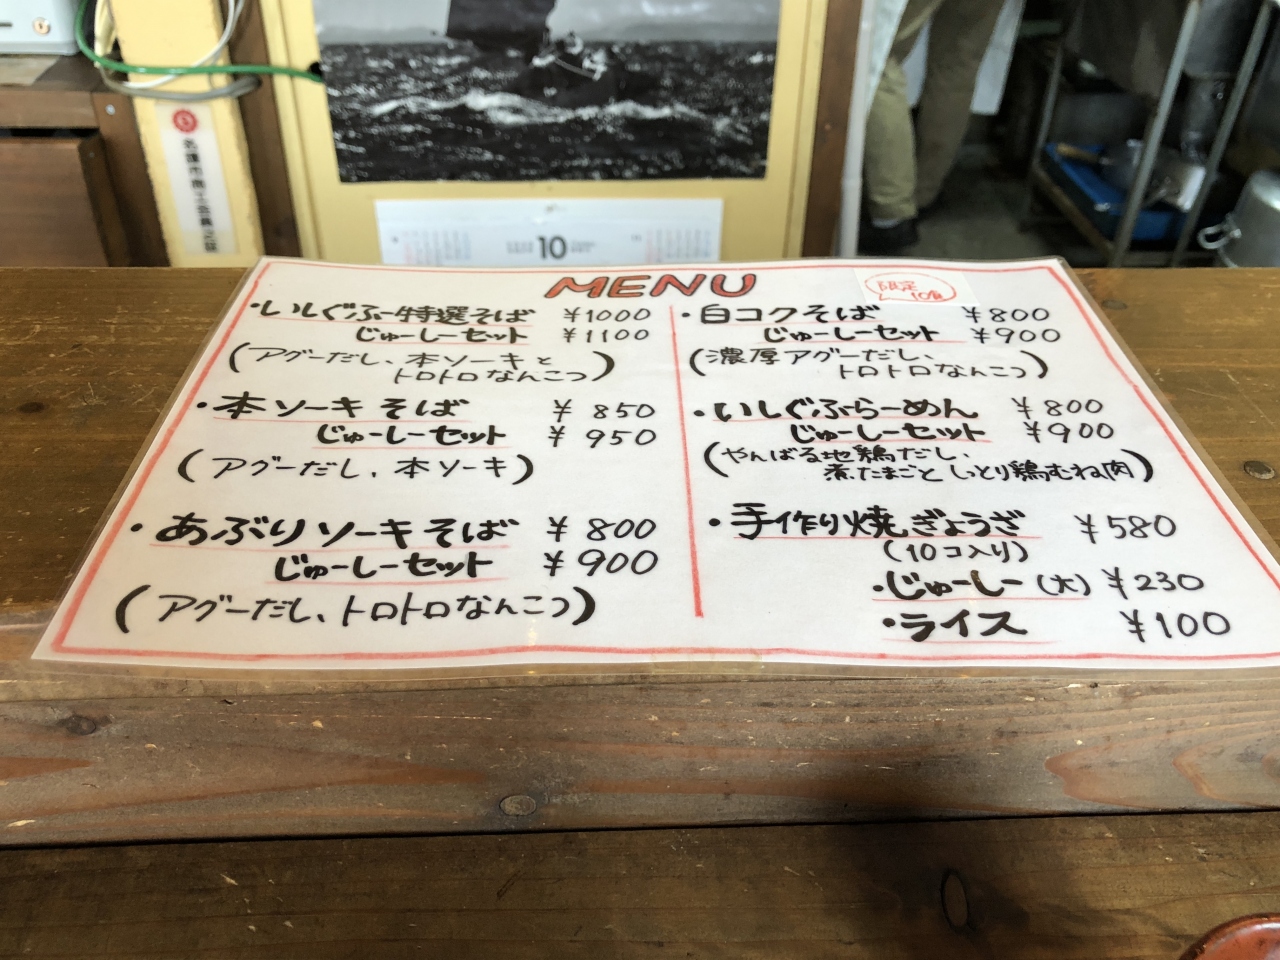 名護市商工会員之証
10
MENU
・いしぐふー特選そば ¥1000
じゅーしーセット ¥1100
(アグーだし、本ソーキと
トロトロなんこつ)
・本ソーキそば ¥850
じゅーしーセット ¥950
(アグーだし、本ソーキ)
・あぶりソーキそば ¥800
じゅーしーセット ¥900
(アグーだし、トロトロなんこつ)
限定
10食
・白コクそば ¥800
じゅーしーセット ¥900
(濃厚アグーだし、
トロトロなんこつ)
・いしぐふらーめん ¥800
じゅーしーセット ¥900
(やんばる地鶏だし、
煮たまごとしっとり鶏むね肉)
・手作り焼ぎょうざ ¥580
(10コ入り)
・じゅーしー(大) ¥230
・ライス ¥100